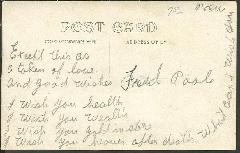 POST CARD
CORRESPONDENCE HERE
ADDRESS ONLY
Except this as
a token of love
and good wishes
Fred Poole
I wish you health
I wish you wealth
I wish you gold in store
I wish you heaven after death
What can I wish